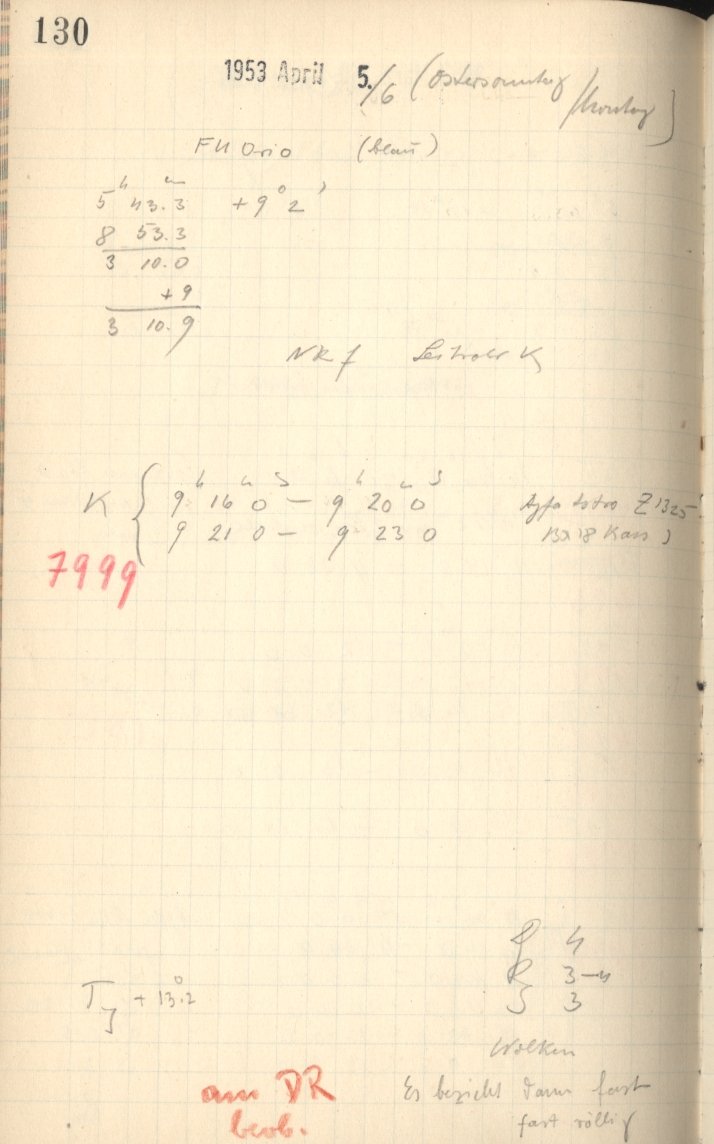 130
1953 April 5./6 (Ostersonntag
/Montag)
FU Orio (blau)
5h 43.3m +9° 2'
8 53.3
3 10.0
+9
3 10.9
NR f Leitrohr K
K { 9h 16m 0s – 9h 20m 0s Agfa Astro Z 1325
9 21 0 – 9 23 0 13x18 Kass)
7999
4
R 3–4
S 3
T + 13°.2
Wolken
am DR Es bezieht dann fast
beob. fast völlig